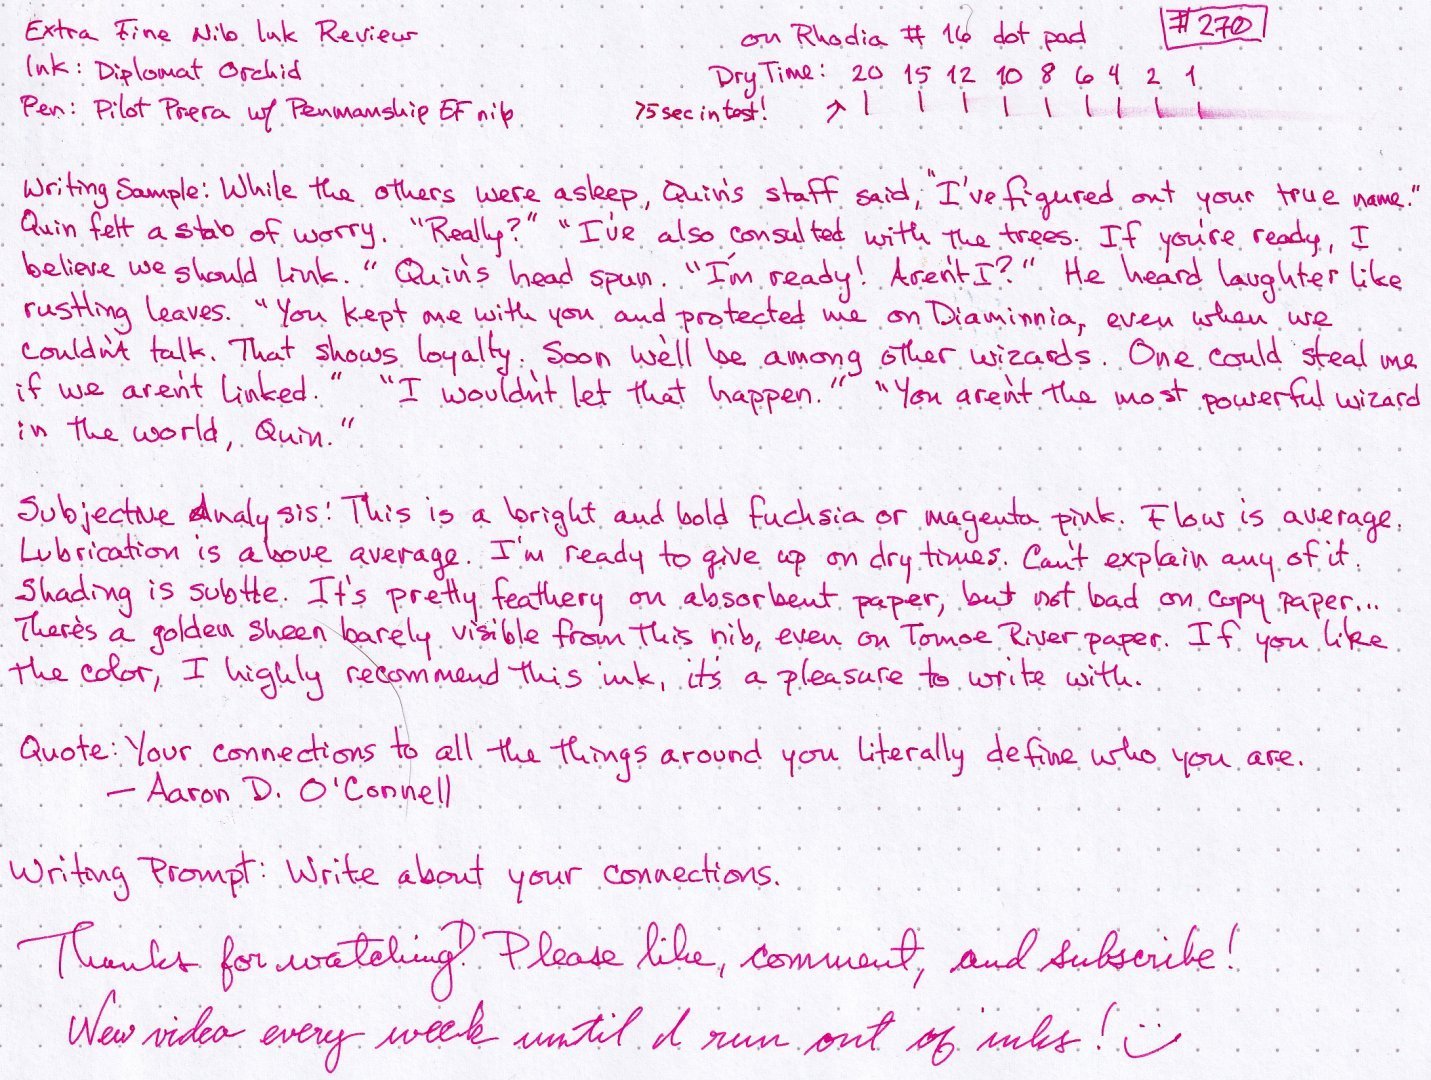 Extra Fine Nib Ink Review
on Rhodia # 16 dot pad
#270
Ink: Diplomat Orchid
Dry Time: 20 15 12 10 8 6 4 2 1
Pen: Pilot Prera w/ Penmanship EF nib
75 sec in test!
Writing Sample: While the others were asleep, Quin's staff said, "I've figured out your true name."
Quin felt a stab of worry. "Really?" "I've also consulted with the trees. If you're ready, I
believe we should link." Quin's head spun. "I'm ready! Aren't I?" He heard laughter like
rustling leaves. "You kept me with you and protected me on Diaminnia, even when we
couldn't talk. That shows loyalty. Soon we'll be among other wizards. One could steal me
if we aren't linked." "I wouldn't let that happen." "You aren't the most powerful wizard
in the world, Quin."
Subjective Analysis: This is a bright and bold fuchsia or magenta pink. Flow is average.
Lubrication is above average. I'm ready to give up on dry times. Can't explain any of it.
Shading is subtle. It's pretty feathery on absorbent paper, but not bad on copy paper...
There's a golden sheen barely visible from this nib, even on Tomoe River paper. If you like
the color, I highly recommend this ink, it's a pleasure to write with.
Quote: Your connections to all the things around you literally define who you are.
— Aaron D. O'Connell
Writing Prompt: Write about your connections.
Thanks for watching! Please like, comment, and subscribe!
New video every week until I run out of inks! :)